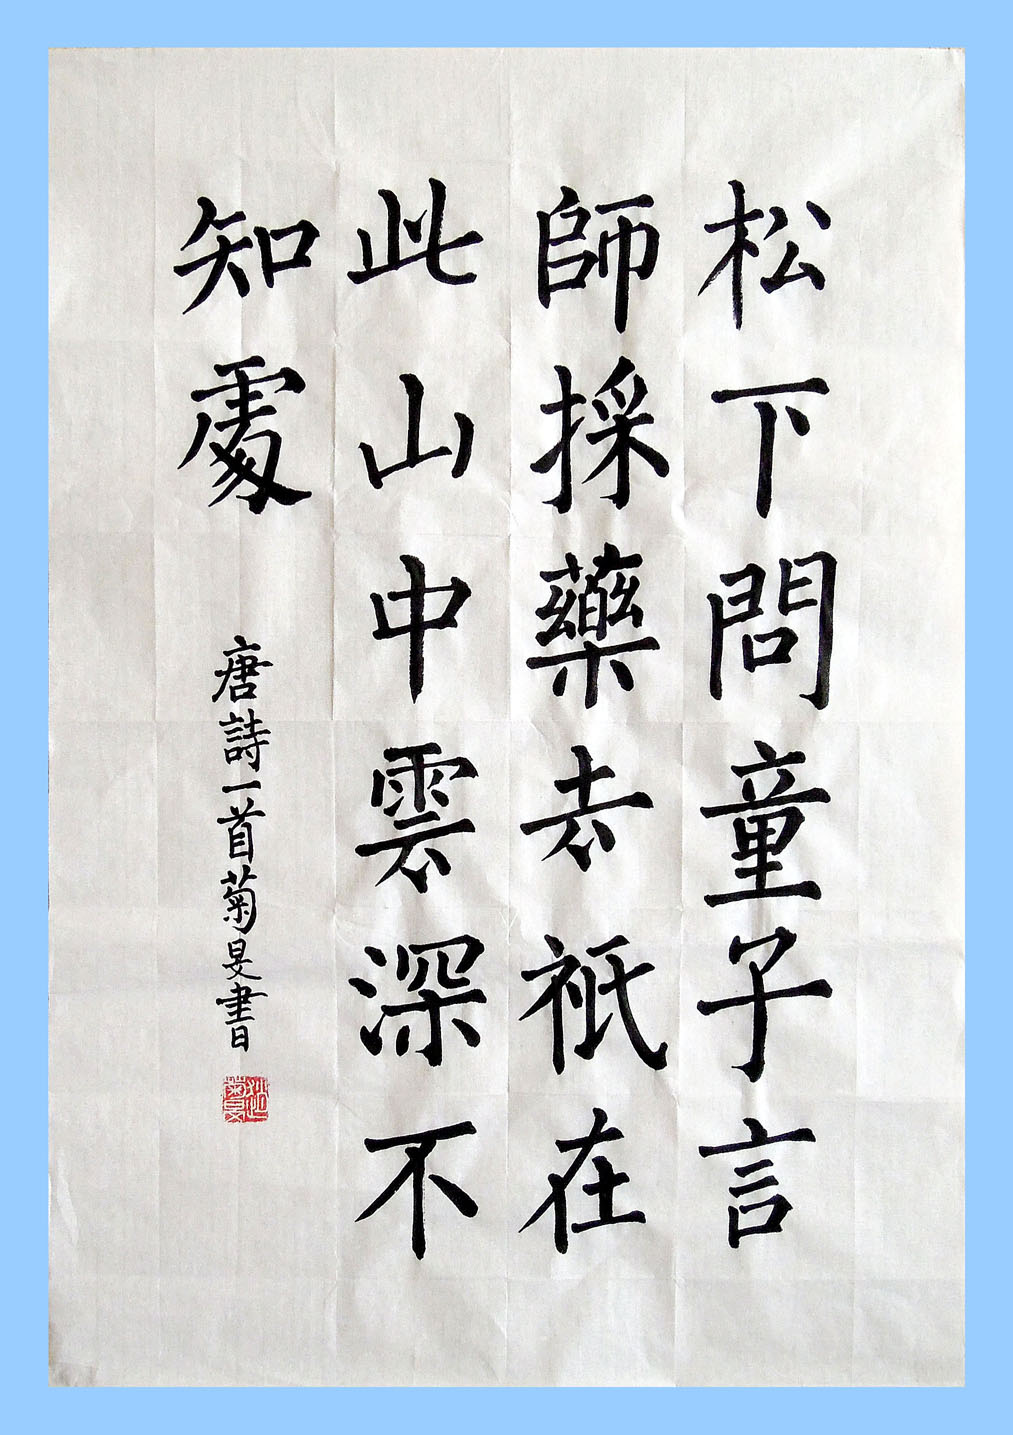 松下問童子言
師採藥去祇在
此山中雲深不
知處
唐詩一首菊旻書